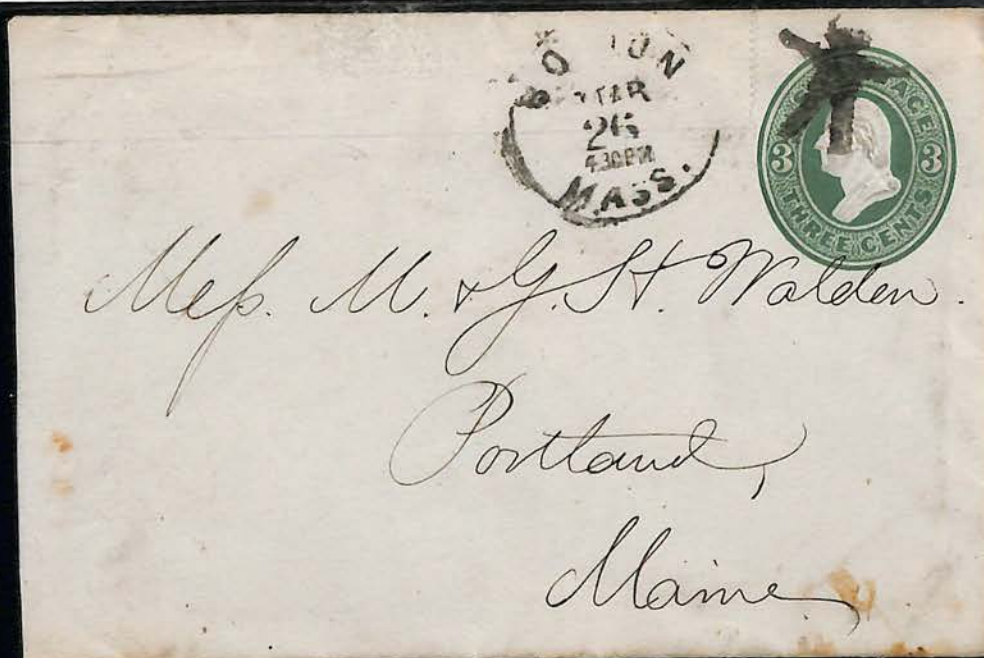 BOSTON
MAR
26
4.30PM
MASS.
POSTAGE
3 3
THREE CENTS
Mess. M. & G. H. Walden.
Portland,
Maine